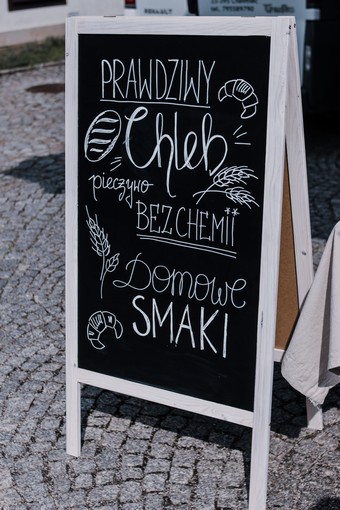 RENAULT
PRAWDZIWY
Chleb
pieczywo
BEZ CHEMII
Domowe
SMAKI